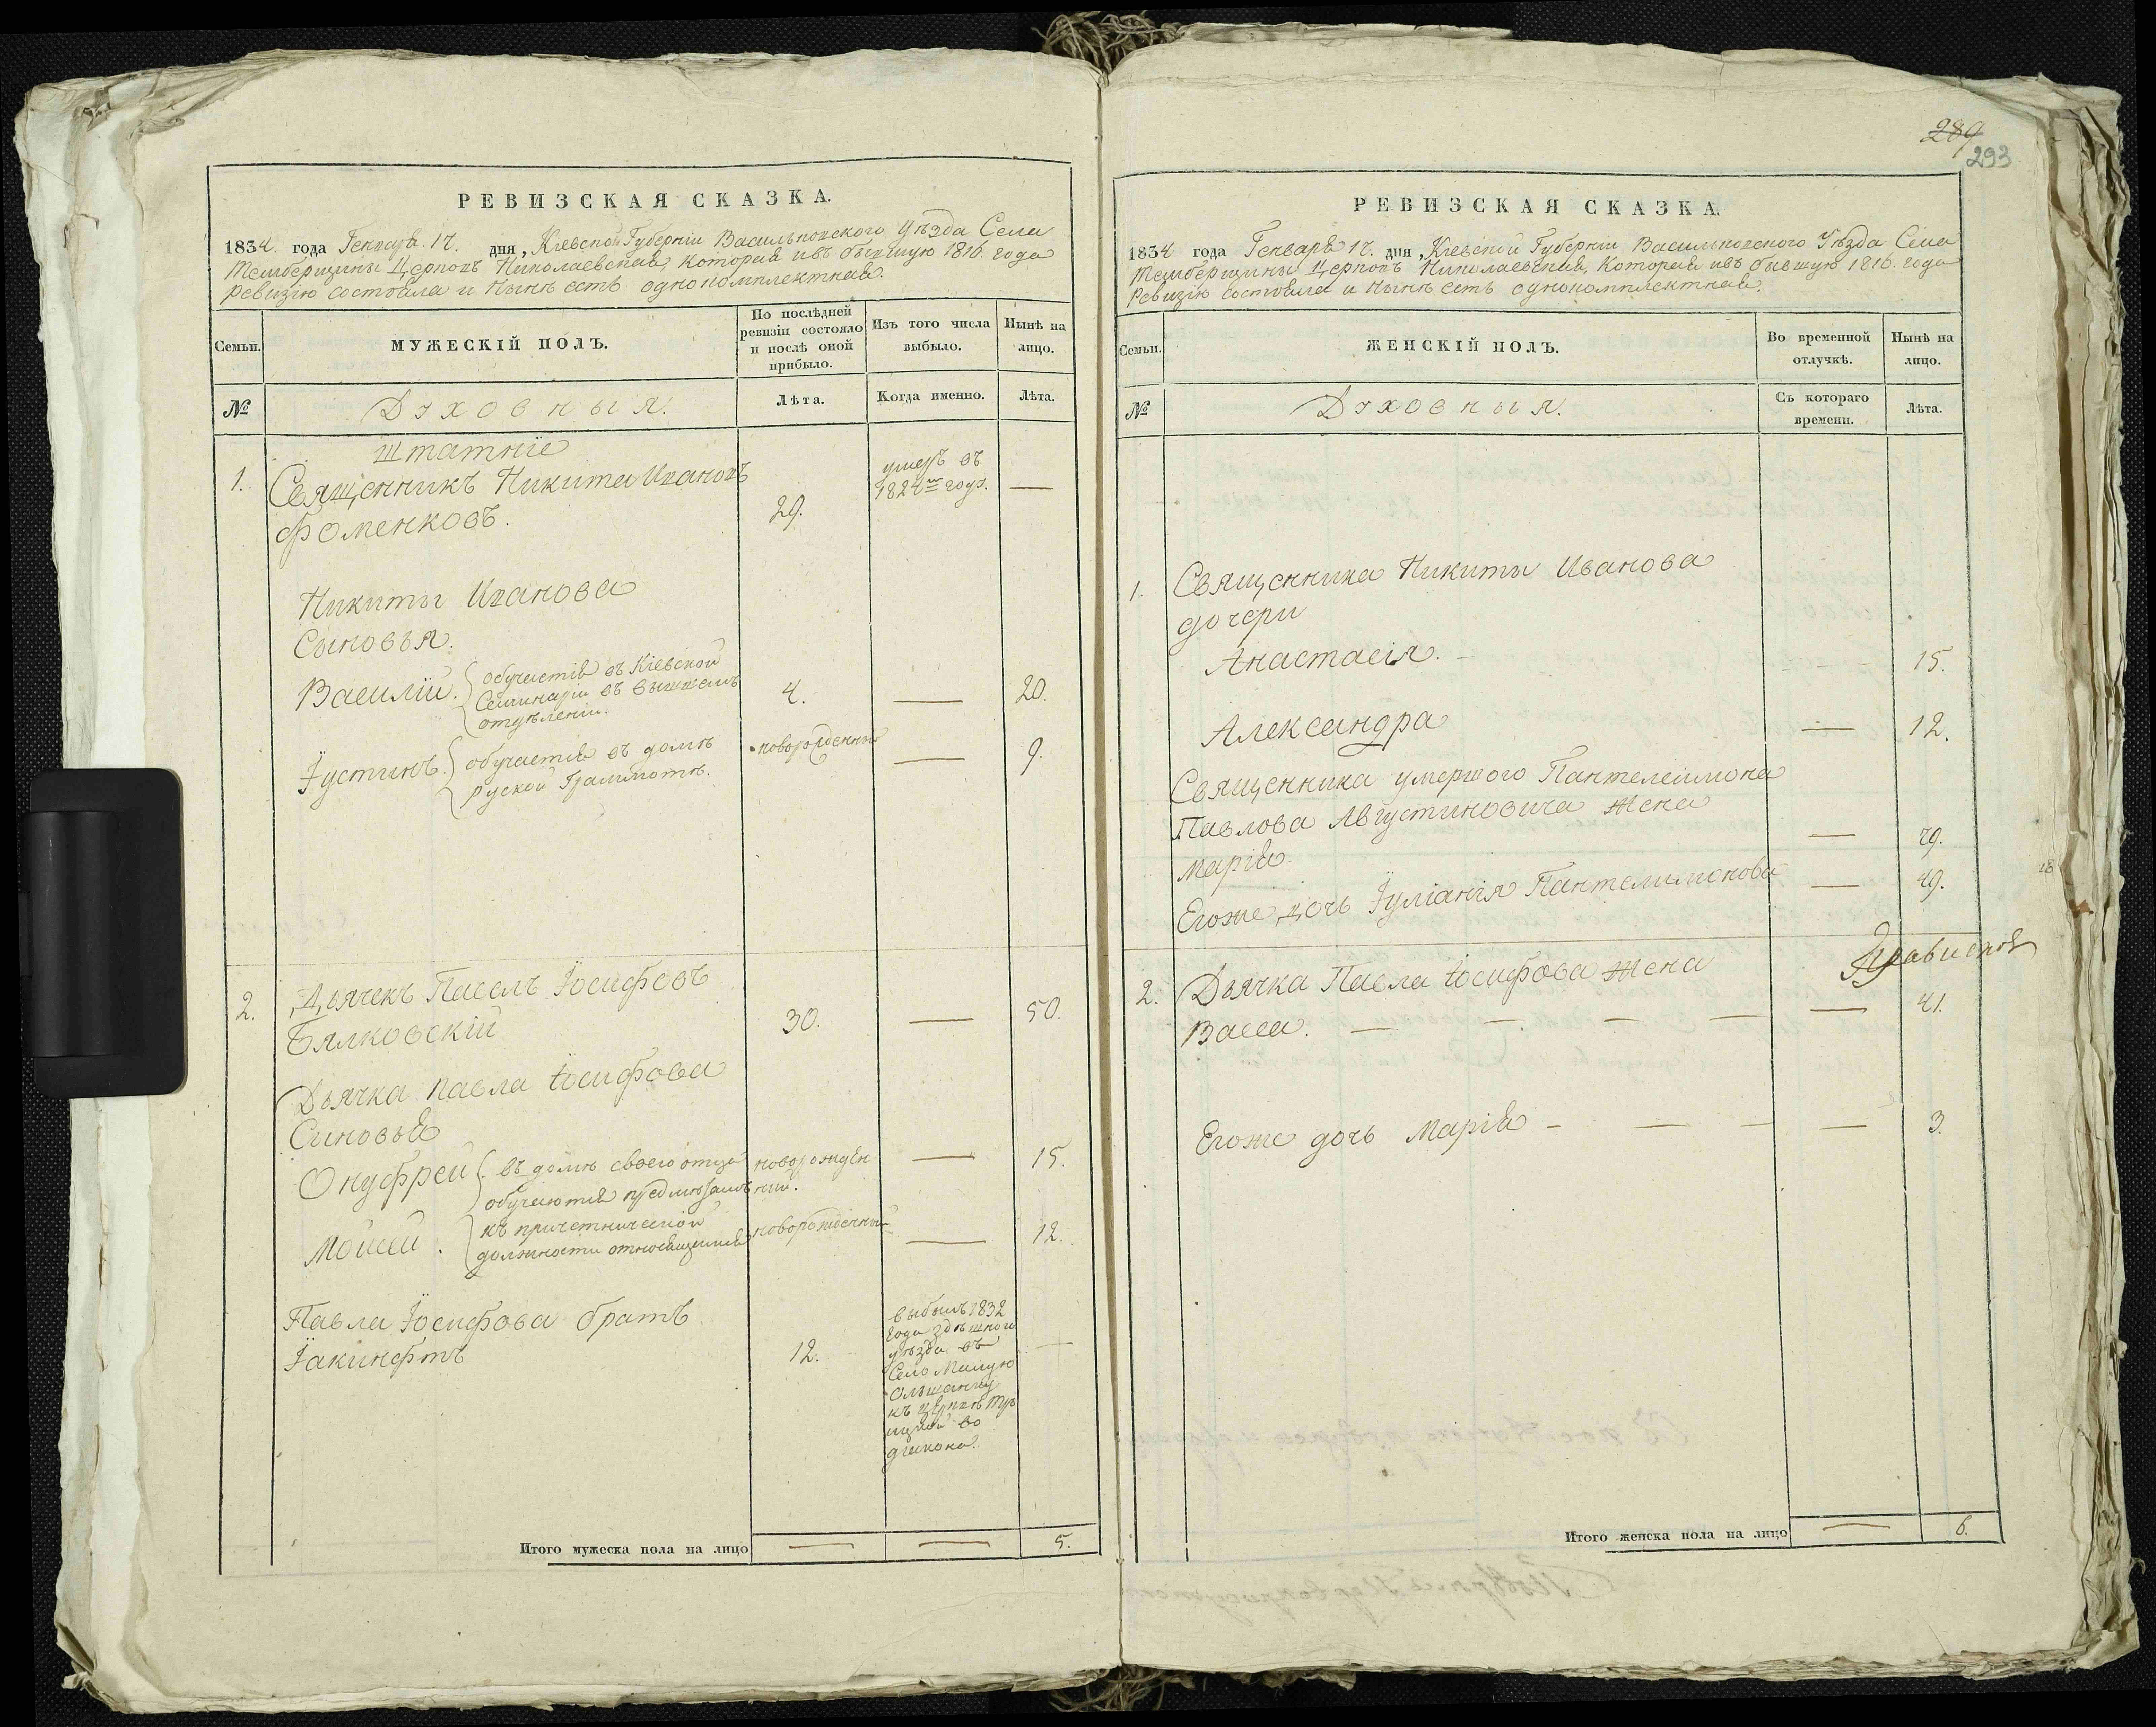 РЕВИЗСКАЯ СКАЗКА.
1834. года Генваря 17. дня, Кіевской Губерніи Васильковского Уѣзда Села
Темберщины Церковъ Николаевская, которая ивъ бывшую 1816. года
Ревизію состояла и нынѣ есть однокомплектная.
Семьи.
МУЖЕСКІЙ ПОЛЪ.
По послѣдней ревизіи состояло и послѣ оной прибыло.
Изъ того числа выбыло.
Нынѣ на лицо.
№
Духовныя.
Лѣта.
Когда именно.
Лѣта.
Штатніе
1. Священникъ Никита Ивановъ
Фоменковъ. 29. умеръ въ 1824м году. —
Никиты Иванова
Сыновья.
Василій. обучается въ Кіевской
Семинаріи въ вышшемъ
отдѣленіи. 4. — 20.
Іустинъ. обучается въ домѣ
руской Грамматѣ. новорожденный — 9.
2. Дьячекъ Павелъ Іосифовъ
Бялковскій 30. — 50.
Дьячка Павла Іосифова
Синовья
Онуфрей въ домѣ своего отца новорожден — 15.
обучаются предмѣтамъ ный.
Моисей. къ причетнической новорожденный — 12.
должности относящимся
Павла Іосифова братъ
Іакинфтъ 12. —
выбылъ 1832
года здѣшного
уѣзда въ
Село Малую
Ольшанку
къ церквѣ Тро
ицкой во
диакона.
Итого мужеска пола на лицо — — 5.
289
293
РЕВИЗСКАЯ СКАЗКА.
1834 года Генваря 17. дня, Кіевской Губерніи Васильковского Уѣзда Села
Темберщины Церковъ Николаевская, Которая ивъ бывшую 1816. года
Ревизію состояла и нынѣ есть однокомплектная.
Семьи.
ЖЕНСКІЙ ПОЛЪ.
Во временной отлучкѣ.
Нынѣ на лицо.
№
Духовныя.
Съ котораго времени.
Лѣта.
1. Священника Никиты Иванова
дочери
Анастасія. — — — 15.
Александра — 12.
Священника умершого Пантелеимона
Павлова Августиновича жена
Марія — 79.
Егоже дочь Іуліанія Пантелимонова — 49.
2. Дьячка Павла Іосифова жена
Васса. — — — — — 41.
Егоже дочь Марія — — — — 3.
Итого женска пола на лицо — 6.